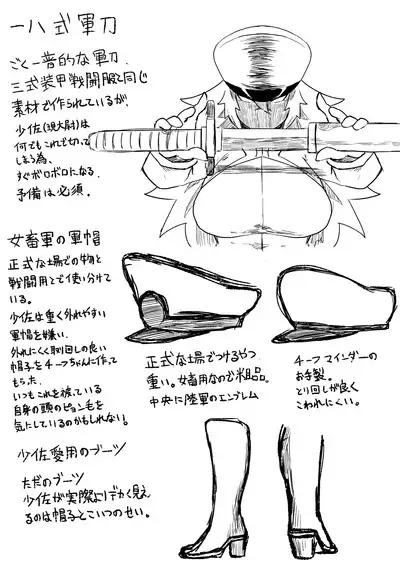 一八式軍刀
ごく一普的な軍刀。
三式装甲戦闘服と同じ
素材で作られているが、
少佐(現大尉)は
何でもこれで切って
しまう為、
すぐボロボロになる。
予備は必須。
女畜軍の軍帽
正式な場での物と
戦闘用とで使い分けて
いる。
少佐は重く外れやすい
軍帽を嫌い、
外れにくく取回しの良い
帽子をチーフちゃんに作って
もらった。
いつもこれを被っている
自身の頭のピョン毛を
気にしているのかもしれない。
正式な場でつけるやつ
重い。女畜用なので粗品。
中央に陸軍のエンブレム
チーフマインダーの
お手製。
とり回しが良く
こわれにくい。
少佐愛用のブーツ
ただのブーツ
少佐が実際よりデカく見え
るのは帽子とこいつのせい。